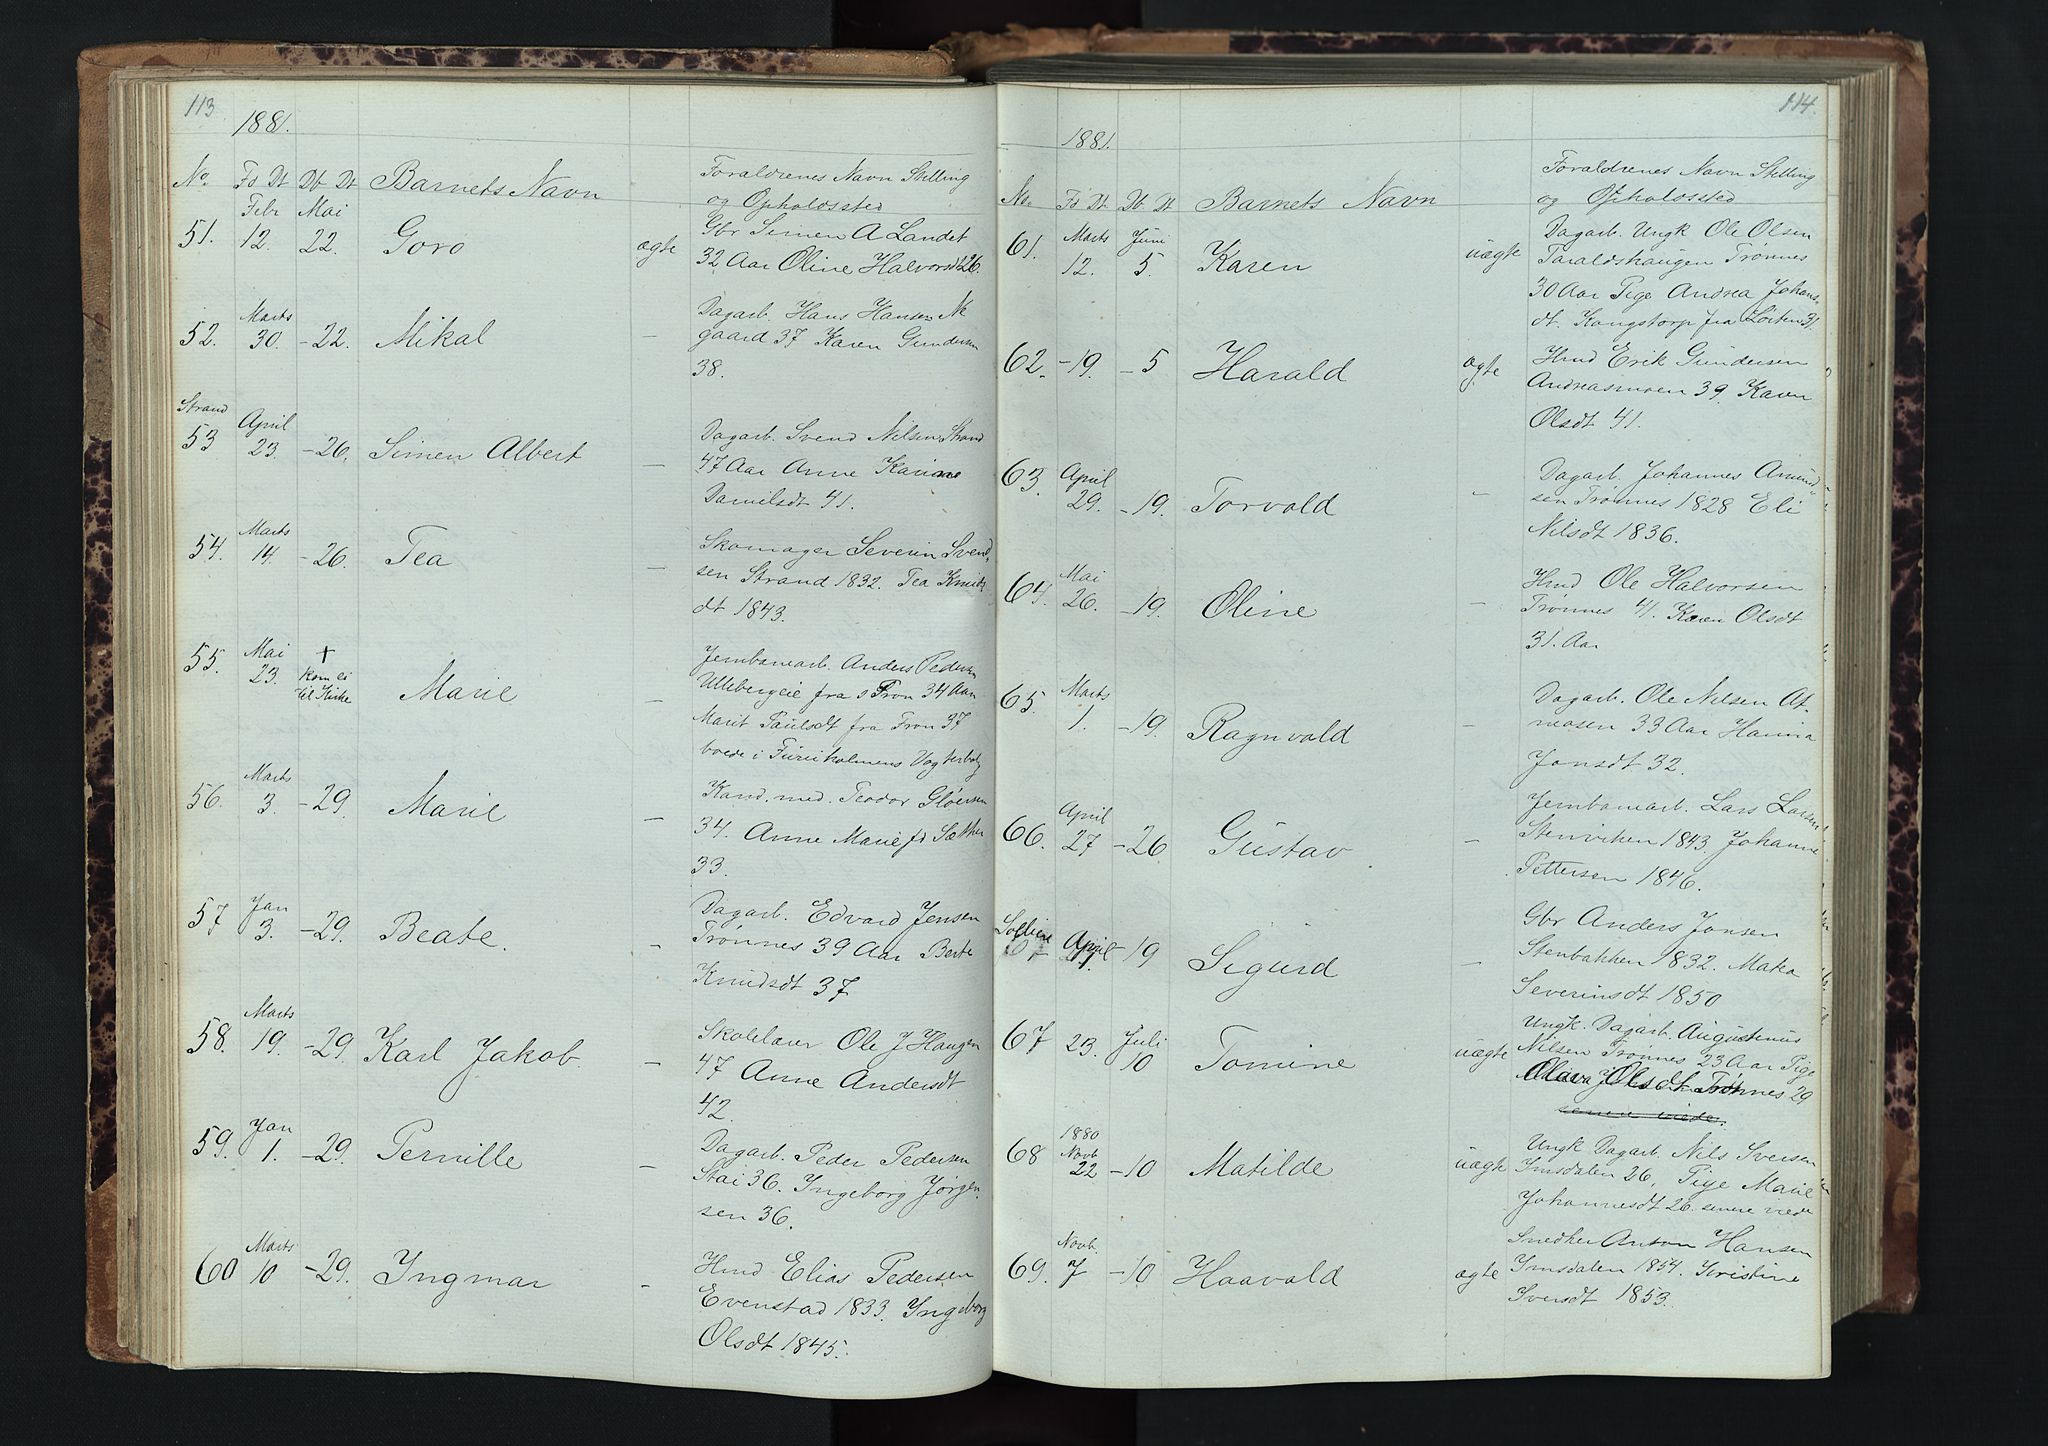 113
1881.
No. Fd Dt Db Dt Barnets Navn Foraldrenes Navn Stilling
og Opholdssted
51. Febr 12. Mai 22. Goro ægte Gbr Simen A Landet
32 Aar Oline Halvorsdt 26.
52. Marts 30. -22. Mikal - Dagarb. Hans Hansen Nk
gaard 37 Karen Gundersen
38.
Strand
53 April 23. -26. Simen Albert - Dagarb. Svend Nilsen Strand
47 Aar Anne Karine
Danielsdt 41.
54. Marts 14. -26. Tea - Skomager Severin Svend
sen Strand 1832. Tea Knuts
dt 1843.
55. Mai 23. + Kom ei til Kirke Marie - Jernbanearb. Anders Pedersen
Ullebergeie fra s Fron 34 Aar
Marit Paulsdt fra Fron 37
boede i Furuholmens Vogterbolg
56. Marts 3. -29. Marie - Kand. med. Teodor Gløersen
34. Anne Marie fd Sæther
33.
57 Jan 3. -29. Beate. - Dagarb. Edvard Jensen
Trønnes 39 Aar Berte
Knudsdt 37
58. Marts 19. -29. Karl Jakob. - Skolelærer Ole J Haugen
47 Anne Andersdt
42.
59. Jan 1. -29. Pernille - Dagarb. Peder Pedersen
Stai 36. Ingeborg Jørgen
sen 36.
60 Marts 10 -29. Ingmar - Hmd Elias Pedersen
Evenstad 1833. Ingeborg
Olsdt 1845.
114.
1881.
No. Fd Dt. Db Dt Barnets Navn Foraldrenes Navn Stilling
og Opholdssted
61. Marts 12. Juni 5. Karen uægte Dagarb. Ungk Ole Olsen
Taraldshaugen Trønnes
30 Aar Pige Andrea Johans
dt. Kongstorp fra Løiten 31
62. -19. -5 Harald ægte Hmd Erik Gundersen
Andreasmoen 39. Karen
Olsdt 41.
63. April 29. -19. Torvald - Dagarb. Johannes Amund
sen Trønnes 1828 Eli
Nilsdt 1836.
64. Mai 26. -19. Oline - Hmd Ole Halvorsen
Trønnes 41. Karen Olsdt
31. Aar
65. Marts 1. -19. Ragnvald - Dagarb. Ole Nilsen At-
neosen 33 Aar Hanna
Jonsdt 32.
66. April 27 -26 Gustav - Jernbanearb. Lars Larsen
Stenviken 1843. Johanne
Pettersen 1846.
Sollien
67 April -19 Sigurd - Gbr Anders Jonsen
Stenbakken 1832. Maka
Severinsdt 1850
67 23. Juli 10 Tomine uægte Ungk. Dagarb. Augustinus
Nilsen Trønnes 23 Aar Pige
Olava Olsdt Trønnes 29
senere viede.
68 1880 Novb. 22 -10 Matilde uægte Ungk Dagarb. Nils Iversen
Imsdalen 26, Pige Marie
Johannesdt 26. senere viede
69. Novb. 7 -10 Haavald ægte Snedker Anton Hansen
Imsdalen 1854. Kristine
Iversdt 1853.